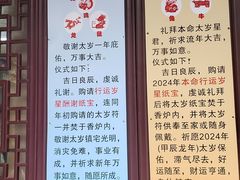 龙
兔
牛
敬谢太岁一年庇
佑，万事吉人。
仪式如下：
吉日良辰，虔诚
礼谢。购请行运岁
星酬谢纸宝，连同
年初购请的太岁符
一并焚于香炉内，
敬谢太岁镇宅光明，
消灾免难，事业有
成，并祈求新年万
事如意，随愿所成。
礼拜本命太岁星
君，祈求流年大吉，
万事如意。
仪式如下：
吉日良辰，购请
2024年本命行运岁
星纸宝，虔诚礼拜
后将太岁纸宝焚于
香炉内，并将太岁
符供奉至家或随身
佩戴。祈愿2024年
(甲辰龙年)太岁保
佑，滞气尽去，好
运随至，财运亨通，